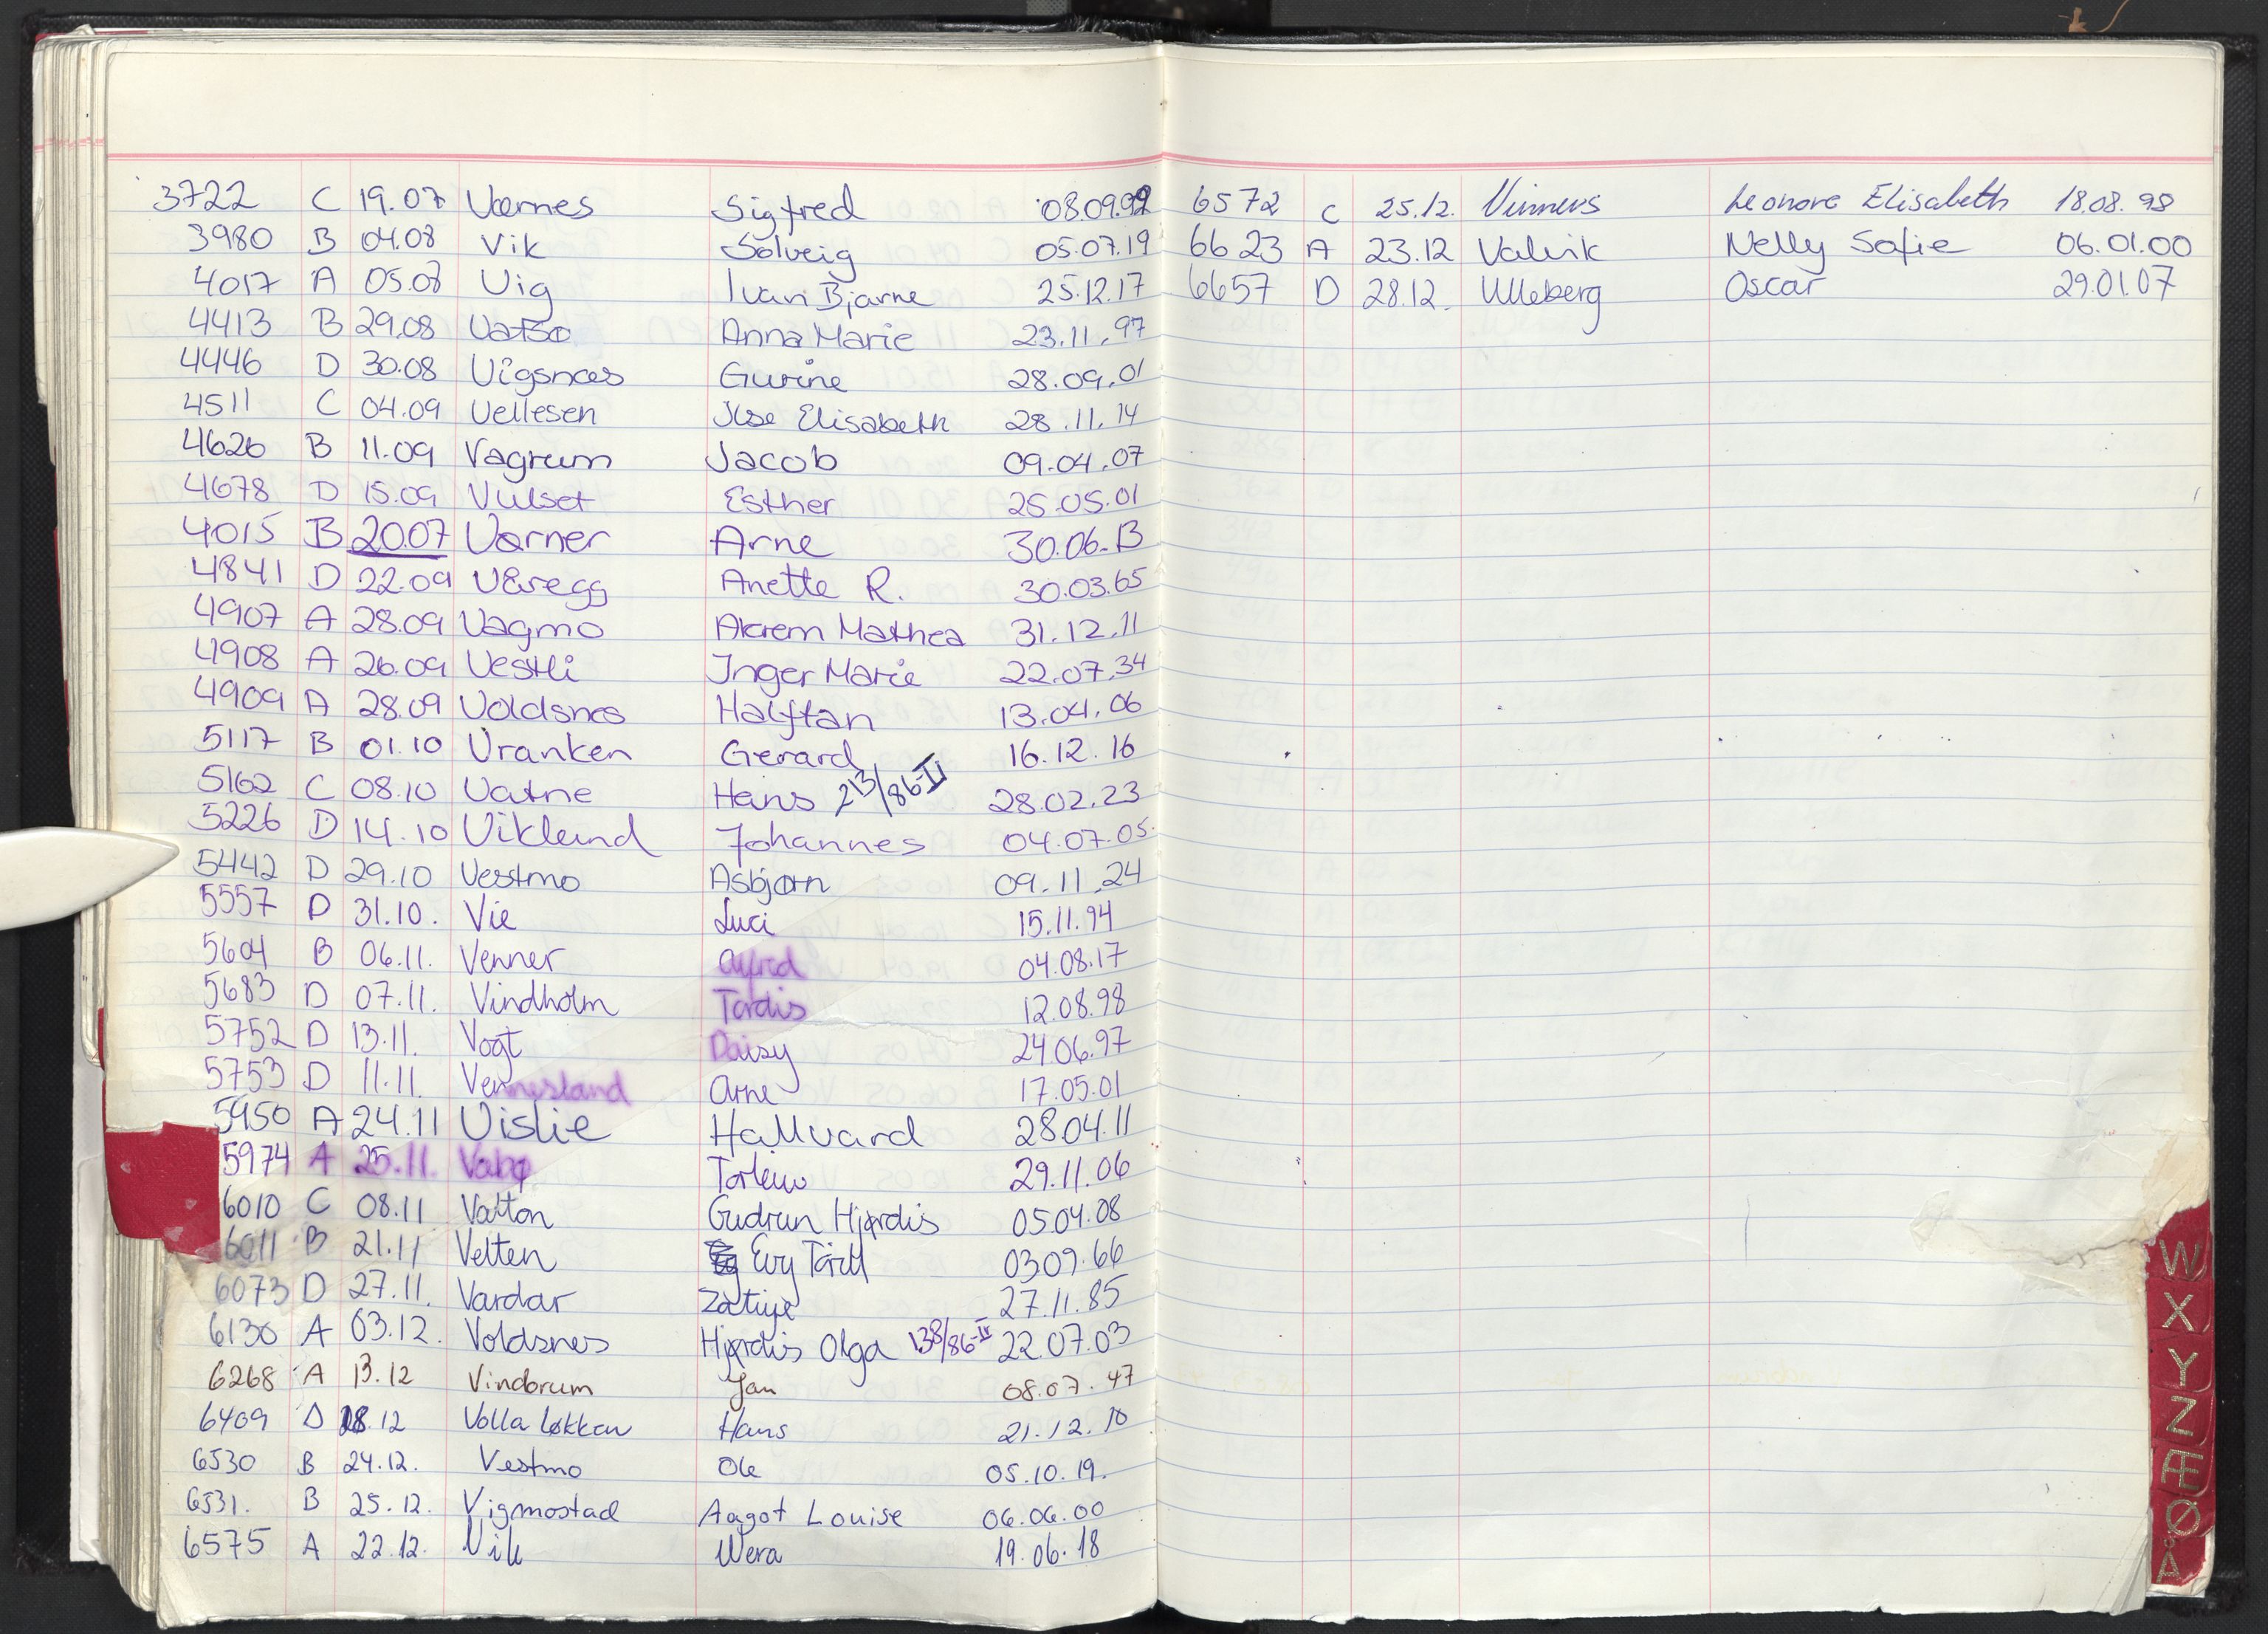 3722 C 19.07 Værnes Sigfred 08.09.92
3980 B 04.08 Vik Solveig 05.07.19
4017 A 05.08 Vig Ivan Bjarne 25.12.17
4413 B 29.08 Vatsø Anna Marie 23.11.97
4446 D 30.08 Vigsnæs Gurine 28.09.01
4511 C 04.09 Vellesen Ilse Elisabeth 28.11.14
4626 B 11.09 Vagrum Jacob 09.04.07
4678 D 15.09 Vulset Esther 25.05.01
4015 B 20.07 Varner Arne 30.06.13
4841 D 22.09 Anette R. 30.03.65
4907 A 28.09 Vagmo Mathea 31.12.11
4908 A 26.09 Vestli Inger Marie 22.07.34
4909 A 28.09 Voldsnes Halftan 13.04.06
5117 B 01.10 Vranken Gerard 16.12.16
5162 C 08.10 Vatne Hans 213/86-II 28.02.23
5226 D 14.10 Viklund Johannes 04.07.05.
5442 D 29.10 Vestmo Asbjørn 09.11.24
5557 D 31.10. Vie Luci 15.11.94
5604 B 06.11. Venner Alfred 04.08.17
5683 D 07.11. Vindholm Tordis 12.08.98
5752 D 13.11. Vogt Daisy 24.06.97
5753 D 11.11. Vennesland Arne 17.05.01
5950 A 24.11 Vislie Hallvard 28.04.11
5974 A 25.11. Vabø Torleiv 29.11.06
6010 C 08.11 Valton Gudrun Hjørdis 05.04.08
6011 B 21.11 Velten Evy Torill 03.09.66
6073 D 27.11. Vardar Zatiye 27.11.85
6130 A 03.12. Voldsnes Hjørdis Olga 138/86-II 22.07.03
6268 A 13.12 Vindorum Jan 08.07.47
6409 D 18.12 Volla Løkken Hans 21.12.10
6530 B 24.12. Vestmo Ole 05.10.19.
6531. B 25.12. Vigmostad Aagot Louise 06.06.00
6575 A 22.12. Vik Wera 19.06.18
6572 C 25.12. Leonore Elisabeth 18.08.98
6623 A 23.12 Valvik Nelly Sofie 06.01.00
6657 D 28.12. Ulleberg Oscar 29.01.07
W
X
Y
Z
Æ
Ø
Å